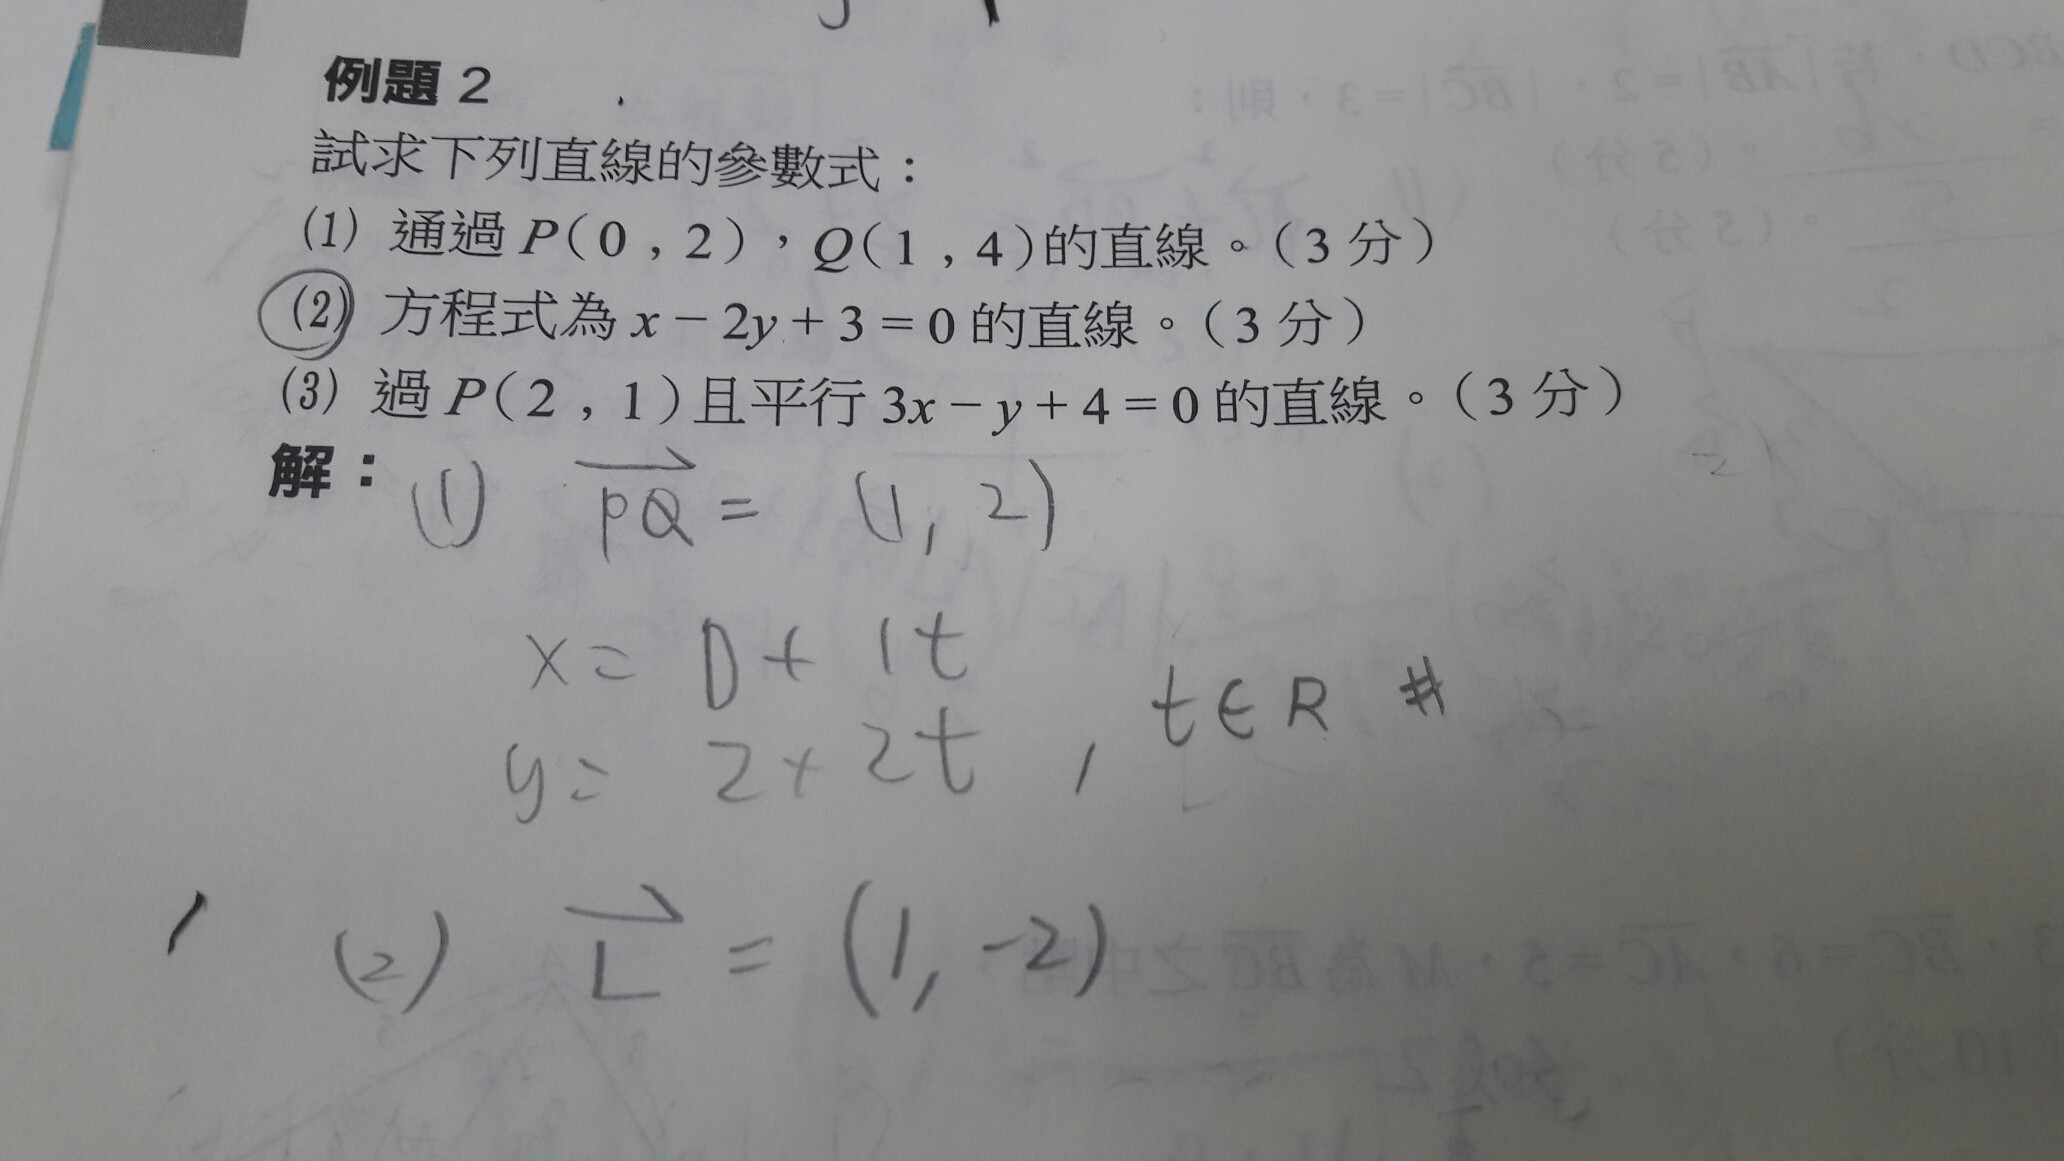 例題 2
試求下列直線的參數式：
(1) 通過 P(0 , 2)，Q(1 , 4)的直線。(3 分)
(2) 方程式為 x − 2y + 3 = 0 的直線。(3 分)
(3) 過 P(2 , 1)且平行 3x − y + 4 = 0 的直線。(3 分)
解：(1) PQ = (1, 2)
x = 0 + 1t
y = 2 + 2t , t∈R #
(2) L = (1, -2)